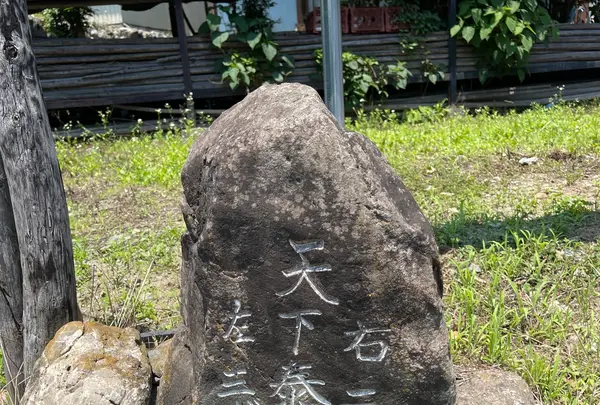 右
天下泰
左三